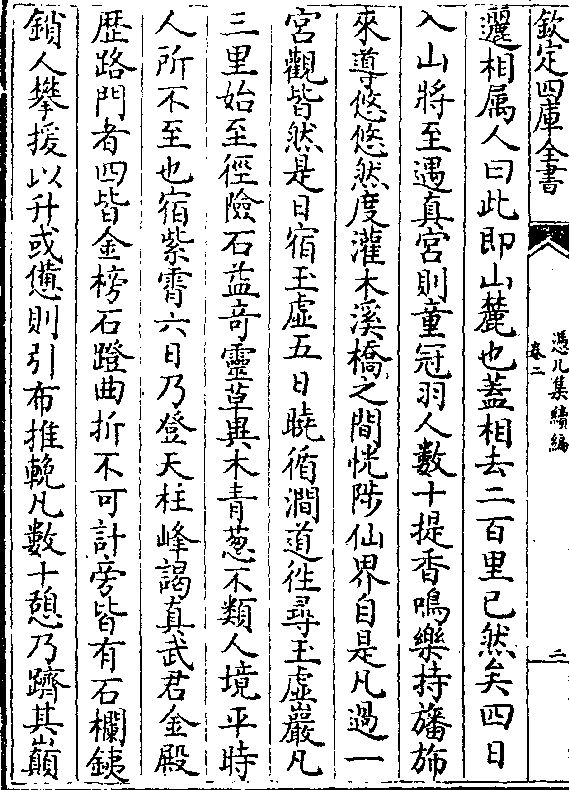 欽定四庫全書
憑几集續編
卷二
二
邐相属人曰此即山麓也蓋相去二百里已然矣四日
入山將至遇真宮則童冠羽人數十提香鳴樂持旛斾
來導悠悠然度灌木溪橋之間恍陟仙界自是凡過一
宮觀皆然是日宿玉虛五日曉循澗道往尋玉虛巖凡
三里始至徑險石益竒靈草異木青葱不類人境平時
人所不至也宿紫霄六日乃登天柱峰謁真武君金殿
歴路門者四皆金榜石蹬曲折不可計旁皆有石欄銕
鎖人攀援以升或憊則引布推輓凡數十憩乃躋其巔